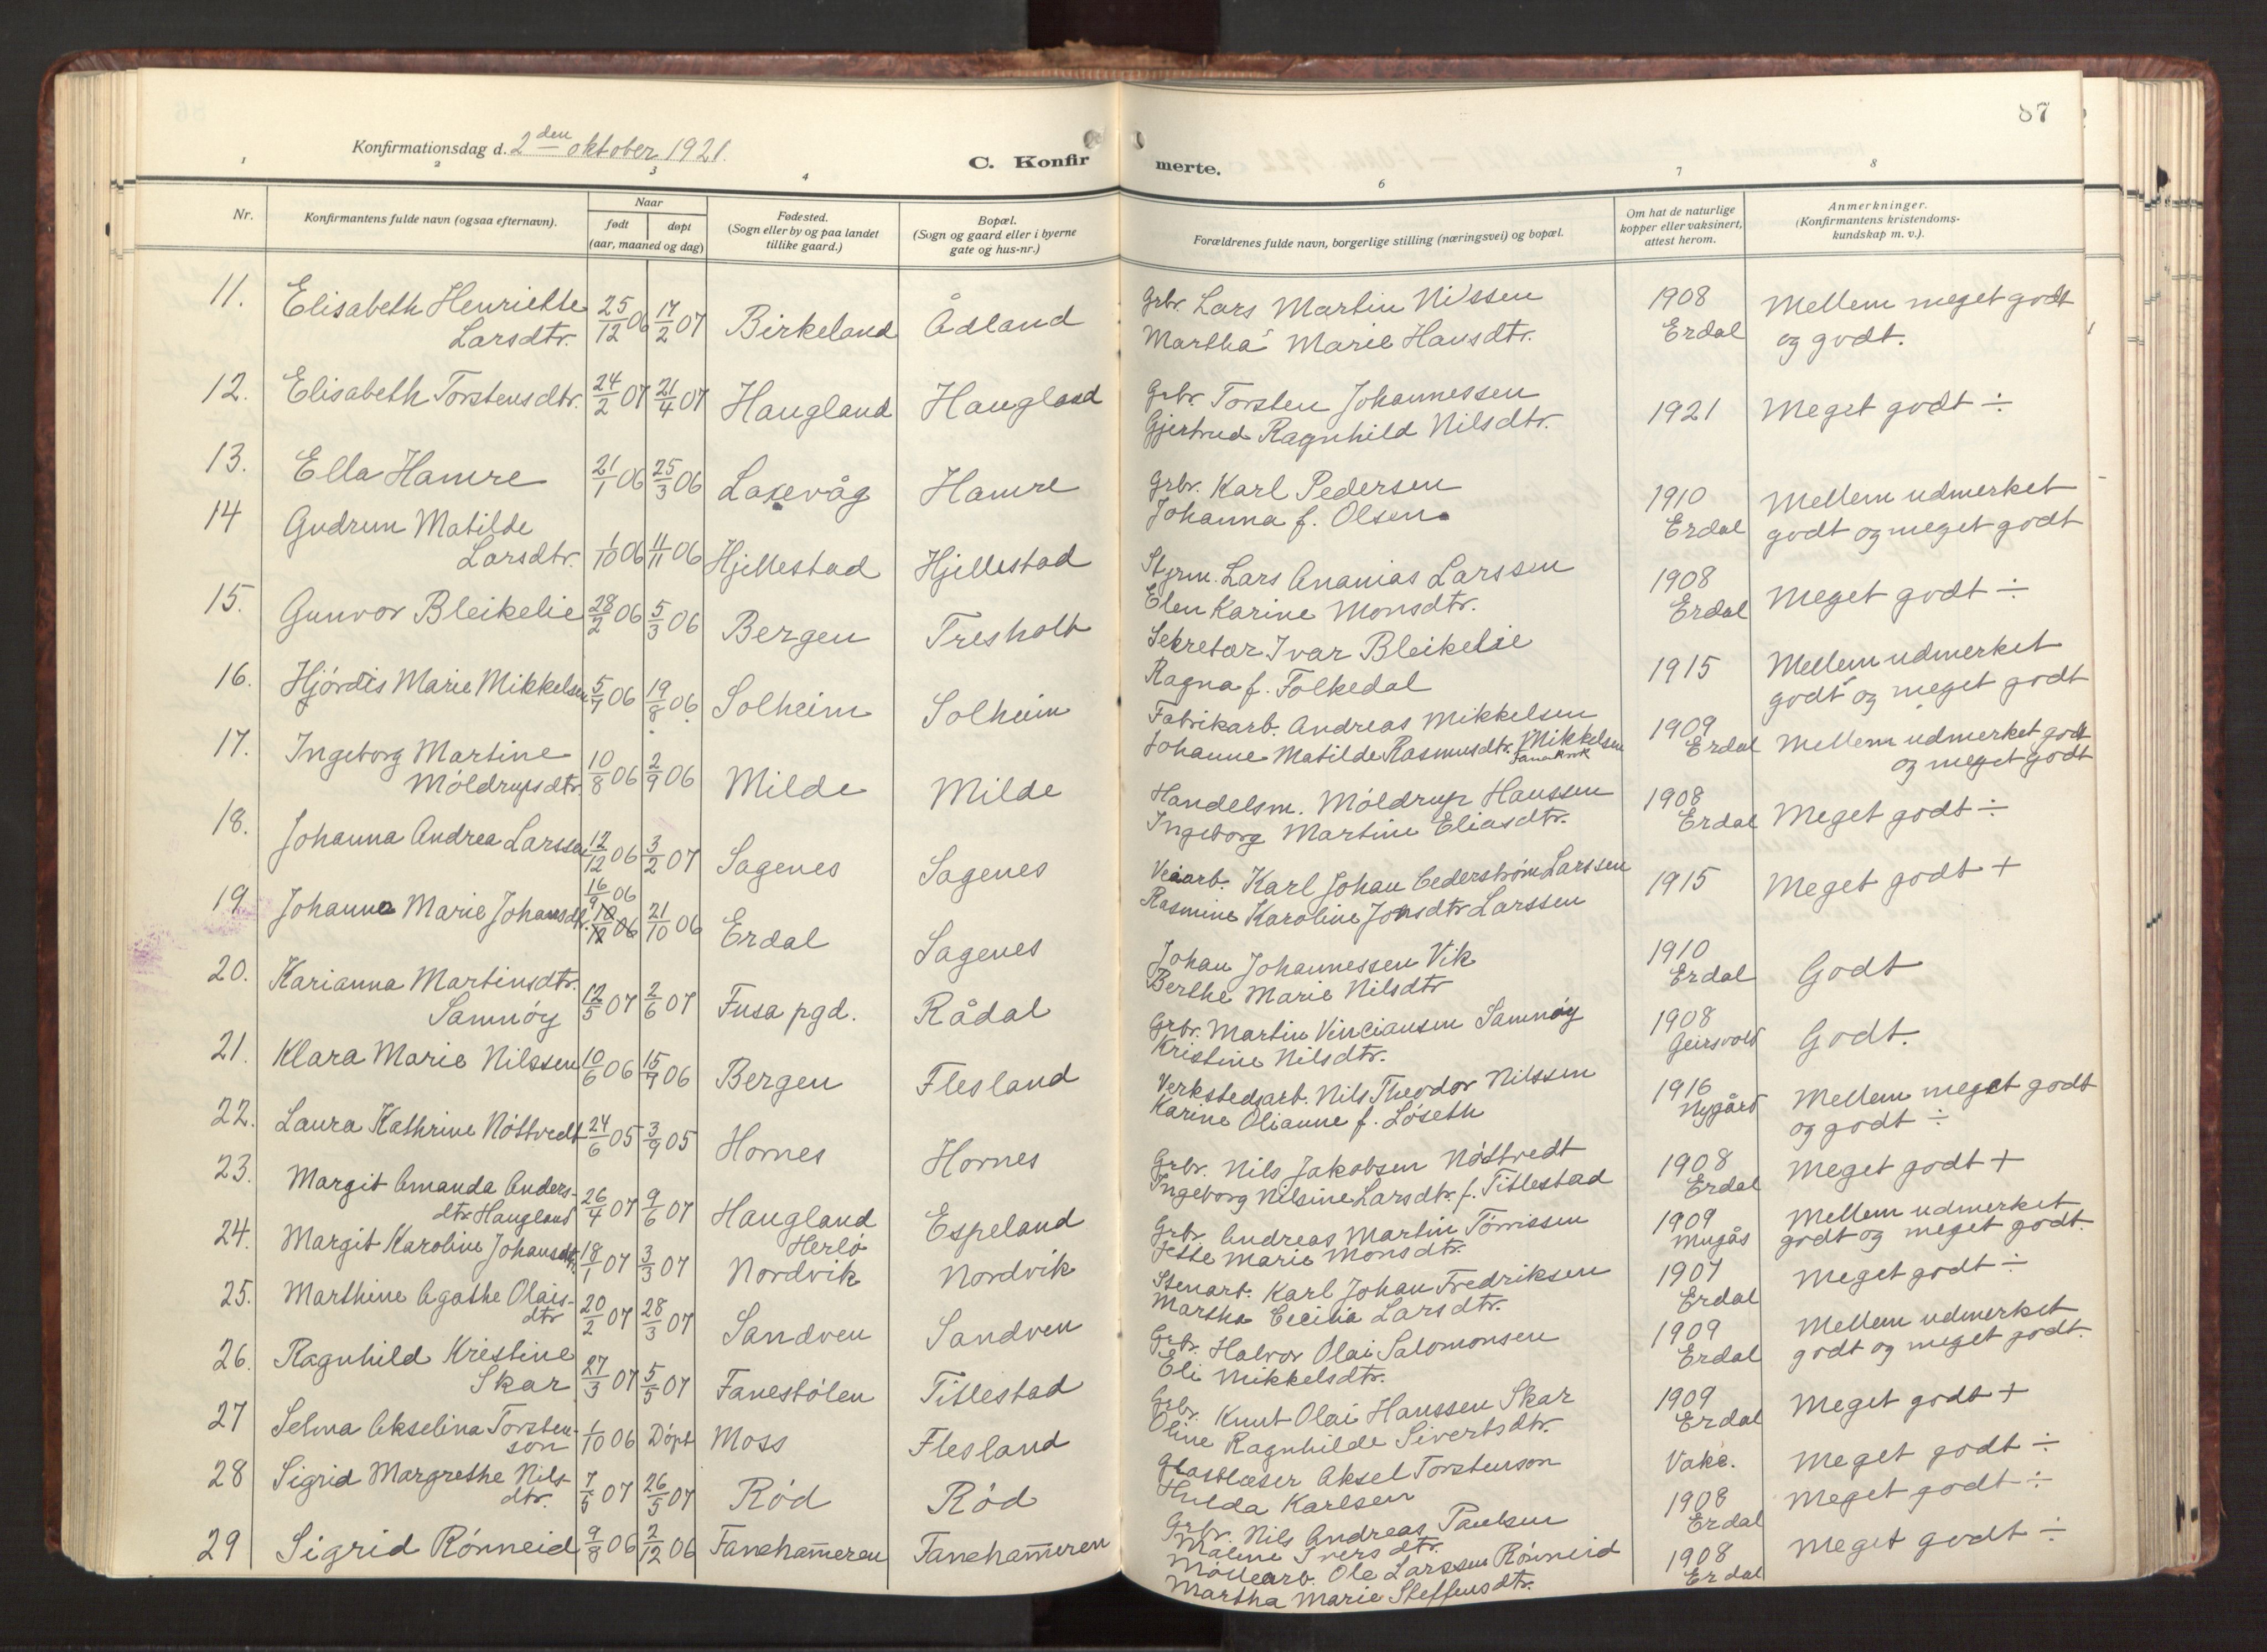 87
Konfirmationsdag d. 2den oktober 1921.
C. Konfirmerte.
1 2 3 4 6 7 8
Nr.
Konfirmantens fulde navn (ogsaa efternavn).
Naar
født døpt
(aar, maaned og dag)
Fødested.
(Sogn eller by og paa landet
tillike gaard.)
Bopæl.
(Sogn og gaard eller i byerne
gate og hus-nr.)
Forældrenes fulde navn, borgerlige stilling (næringsvei) og bopæl.
Om hat de naturlige
kopper eller vaksinert,
attest herom.
Anmerkninger.
(Konfirmantens kristendoms-
kundskap m. v.).
11. Elisabeth Henriette 25/12 06 17/2 07 Birkeland Ådland Grbr. Lars Martin Nilssen 1908 Mellem meget godt
Larsdtr. Martha Marie Hansdtr. Erdal og godt.
12. Elisabeth Torstensdtr. 24/2 07 21/4 07 Haugland Haugland Grbr. Torsten Johannessen 1921 Meget godt ÷
Gjertrud Ragnhild Nilsdtr.
13. Ella Hamre 21/1 06 25/3 06 Laxevåg Hamre Grbr. Karl Pedersen 1910 Mellem udmerket
Johanna f. Olsen. Erdal godt og meget godt
14 Gudrun Matilde 1/10 06 11/11 06 Hjellestad Hjellestad Styrm. Lars Ananias Larssen 1908 Meget godt ÷
Larsdtr. Elen Karine Monsdtr. Erdal
15. Gunvor Bleikelie 28/2 06 5/3 06 Bergen Tresholt Sekretær Ivar Bleikelie 1915 Mellem udmerket
Ragna f. Folkedal godt og meget godt
16. Hjördis Marie Mikkelsen 5/7 06 19/8 06 Solheim Solheim Fabrikarb. Andreas Mikkelsen 1909 Mellem udmerket godt
Johanne Matilde Rasmusdtr. Mikkelsen Erdal og meget godt
17. Ingeborg Martine 10/8 06 2/9 06 Milde Milde Handelsm. Möldrup Hanssen 1908 Meget godt ÷
Möldrupsdtr. Ingeborg Martine Eliasdtr. Erdal
18. Johanna Andrea Larssen 12/12 06 3/2 07 Sagenes Sagenes Veiarb. Karl Johan Cederström Larssen 1915 Meget godt +
Rasmine Karoline Jonsdtr Larssen
16/9 06
19 Johanna Marie Johansdtr. 10/12 06 21/10 06 Erdal Sagenes Johan Johannessen Vik 1910 Godt
Berthe Marie Nilsdtr Erdal
20. Karianna Martinsdtr. 12/5 07 2/6 07 Fusa pgd. Rådal Grbr. Martin Vinciansen Samnöy 1908 Godt.
Samnöy Kristine Nilsdtr. Geirsvold
21. Klara Marie Nilssen 10/6 06 15/9 06 Bergen Flesland Verkstedsarb. Nils Theodor Nilssen 1916 Mellem meget godt
Karine Olianne f. Löseth Nygård og godt ÷
22. Laura Kathrine Nöttvedt 24/6 05 3/9 05 Hornes Hornes Grbr. Nils Jakobsen Nöttvedt 1908 Meget godt +
Ingeborg Nilsine Larsdtr. f. Titlestad Erdal
23. Margit Amanda Anders- 26/4 07 9/6 07 Haugland Espeland Grbr. Andreas Martin Törrissen 1909 Mellem udmerket
dtr. Haugland Herlö Jette Marie Monsdtr. Mugås godt og meget godt.
24. Margit Karoline Johansdtr. 18/1 07 3/3 07 Nordvik Nordvik Stenarb. Karl Johan Fredriksen 1907 Meget godt ÷
Martha Cecilia Larsdtr. Erdal
25. Marthine Agathe Olais- 20/2 07 28/3 07 Sandven Sandven Grbr. Halvor Olai Salomonsen 1909 Mellem udmerket
dtr Eli Mikkelsdtr. Erdal godt og meget godt.
26. Ragnhild Kristine 27/3 07 5/5 07 Fanestölen Titlestad Grbr. Knut Olai Hanssen Skar 1909 Meget godt +
Skar Oline Ragnhilde Sivertsdtr. Erdal
27 Selma Akselina Torsten- 1/10 06 Döpt Moss Flesland Glasblæser Aksel Torstenson Vakc. Meget godt ÷
son Hulda Karlsen
28 Sigrid Margrethe Nils- 7/5 07 26/5 07 Röd Röd Grbr. Nils Andreas Paulsen 1908 Meget godt ÷
dtr. Malene Iversdtr. Erdal
29 Sigrid Rönneid 9/8 06 2/12 06 Fanehameren Fanehameren Möllearb. Ole Larssen Rönneid 1908 Meget godt ÷
Martha Marie Steffensdtr. Erdal